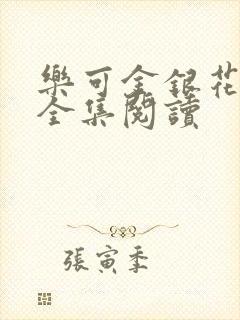 樂可金銀花
全集閱讀
張寅季